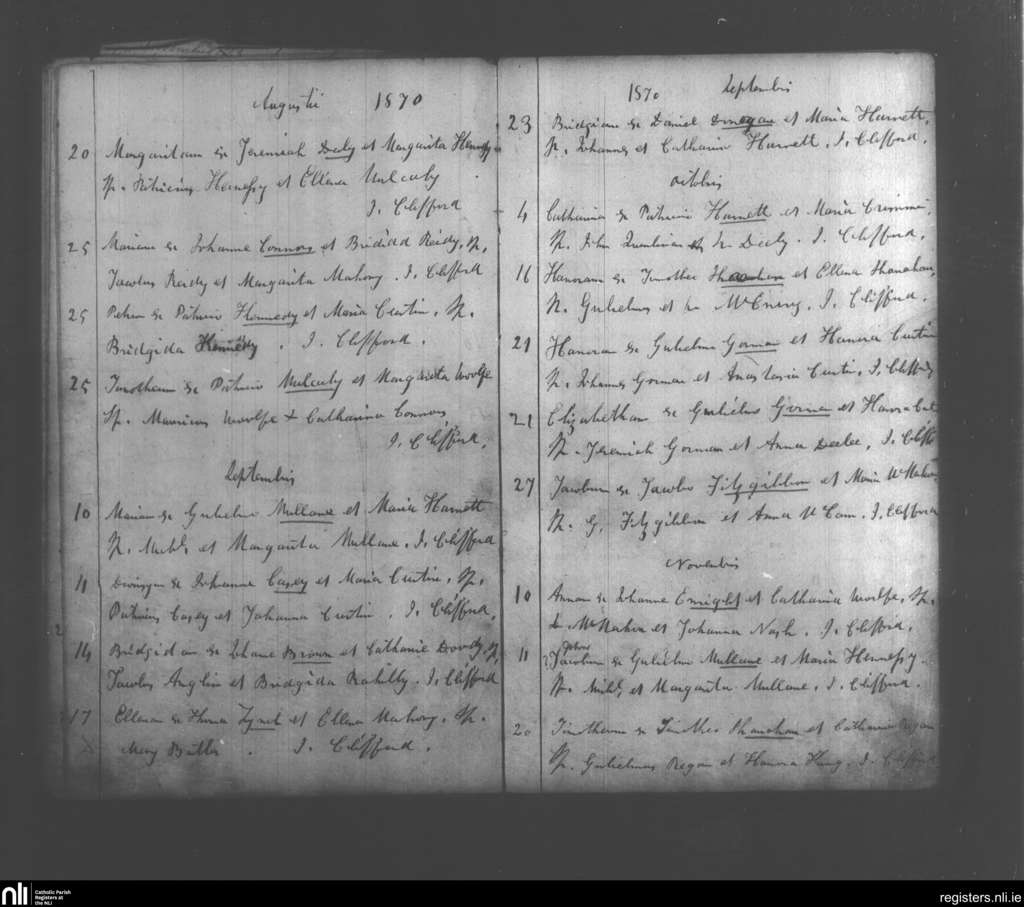 Augustii 1870
20 Margaritam ex Jeremiah Deely et Margarita Hennessy
Sp. Patricius Hennessy et Ellena Mulcahy
J. Clifford
25 Mariam ex Johanne Connors et Bridgida Reidy, Sp.
Jacobus Reidy et Margarita Mahony. J. Clifford
25 Petrum ex Patricio Kennedy et Maria Curtin, Sp.
Bridgida Kennedy. J. Clifford.
25 Timotheum ex Patricio Mulcahy et Margarita Woolfe
Sp. Mauricius Woolfe + Catharina Connors
J. Clifford.
Septembris
10 Mariam ex Gulielmo Mullane et Maria Harnett
Sp. Michl. et Margarita Mullane. J. Clifford
11 ex Johanne Casey et Maria Curtin, Sp.
Patricius Casey et Johanna Curtin. J. Clifford.
14 Bridgidam ex Johane Brown et Catharine Dowdy, Sp.
Jacobus Anglim et Bridgida Rahilly. J. Clifford
17 Ellenam ex Thoma Lynch et Ellena Mahony. Sp.
Mary Butler. J. Clifford.
1870 Septembris
23 Bridgidam ex Daniel et Maria Harnett,
Sp. Johannes et Catharina Harnett. J. Clifford.
Octobris
4 Catharina ex Patricio Harnett et Maria
Sp. John Quinlivan et Deely. J. Clifford.
16 Hanoram ex Timotheo et Ellena Shanahan,
Sp. Gulielmus et J. Clifford.
21 Hanoram ex Gulielmo Gorman et Hanora Curtin
Sp. Johannes Gorman et Anastasia Curtin, J. Clifford
21 Elizabetham ex Gulielmo Gorman et Hanora
Sp. Jeremiah Gorman et Anna Deelee, J. Cliff
27 Jacobum ex Jacobo Fitzgibbon et Maria McMahon
Sp. G. Fitzgibbon et Anna J. Clifford
Novembris
10 Annam ex Johanne Enright et Catharina Woolfe, Sp.
McMahon et Johanna Nash. J. Clifford.
11 Jacobum ex Gulielmo Mullane et Maria Hennessy.
Sp. Michl. et Margarita Mullane. J. Clifford.
20 Timotheum ex Timotheo Shanahan et Catharina Regan
Sp. Gulielmus Regan et Hanora J. Clifford
nli
Catholic Parish
Registers at
the NLI
registers.nli.ie